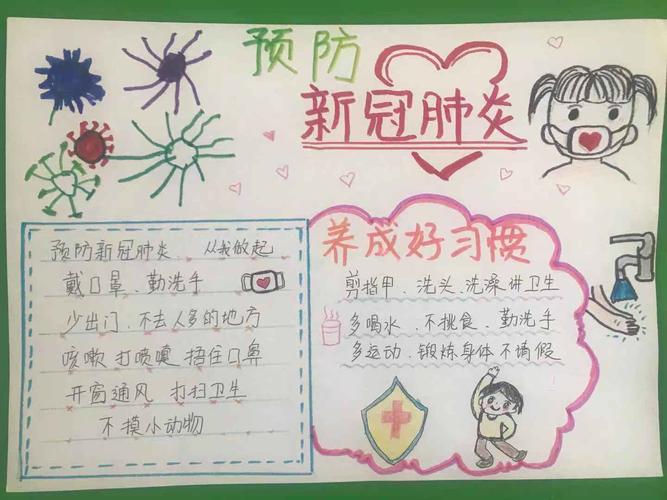 预防
新冠肺炎
预防新冠肺炎、从我做起
戴口罩、勤洗手
少出门、不去人多的地方
咳嗽 打喷嚏 捂住口鼻
开窗通风 打扫卫生
不摸小动物
养成好习惯
剪指甲、洗头、洗澡讲卫生
多喝水、不挑食、勤洗手
多运动、锻炼身体不请假